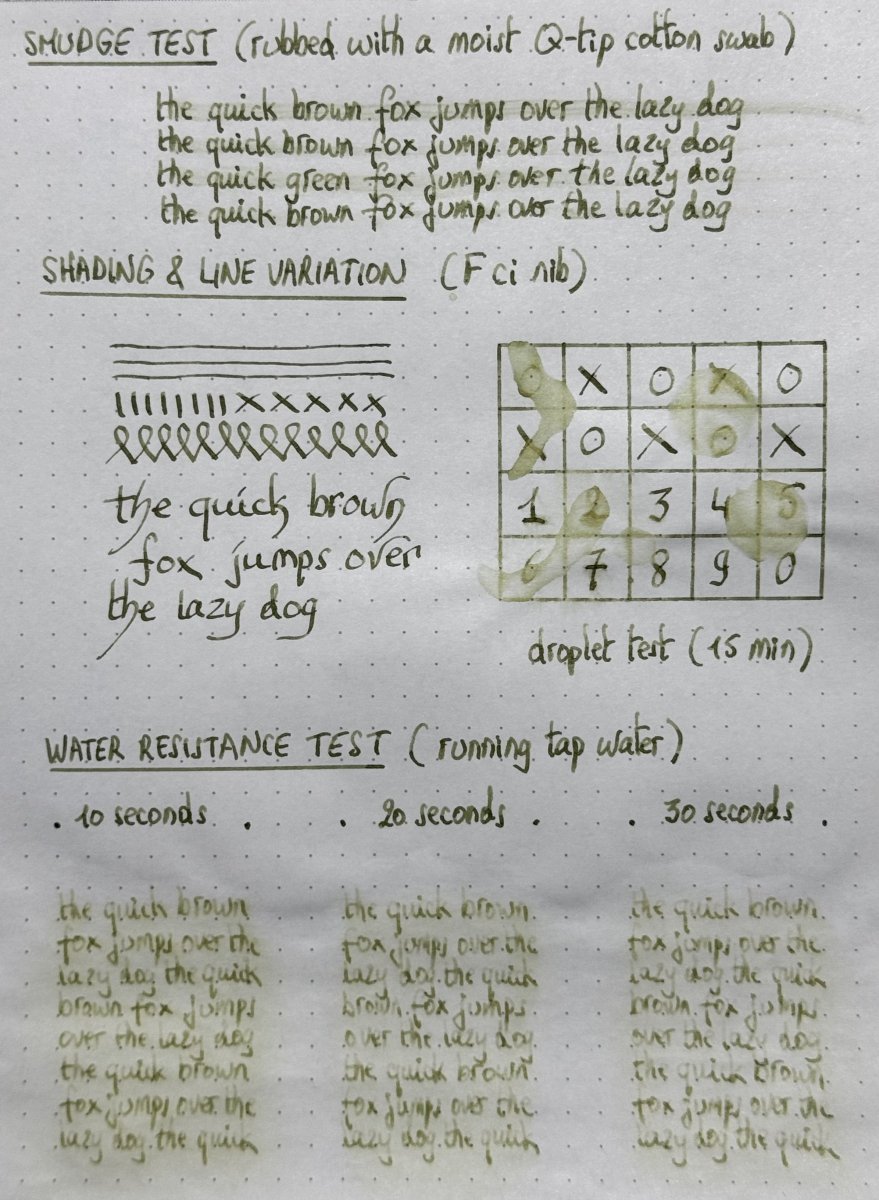 SMUDGE TEST (rubbed with a moist Q-tip cotton swab)
the quick brown fox jumps over the lazy dog
the quick brown fox jumps over the lazy dog
the quick green fox jumps over the lazy dog
the quick brown fox jumps over the lazy dog
SHADING & LINE VARIATION (F ci nib)
IIIIIIIII XXXXX
llllllllllllll
the quick brown
fox jumps over
the lazy dog
O X O X O
X O X O X
1 2 3 4 5
6 7 8 9 0
droplet test (15 min)
WATER RESISTANCE TEST (running tap water)
. 10 seconds . . 20 seconds . . 30 seconds .
the quick brown
fox jumps over the
lazy dog the quick
brown fox jumps
over the lazy dog
the quick brown
fox jumps over the
lazy dog the quick
the quick brown
fox jumps over the
lazy dog the quick
brown fox jumps
over the lazy dog
the quick brown
fox jumps over the
lazy dog the quick
the quick brown
fox jumps over the
lazy dog the quick
brown fox jumps
over the lazy dog
the quick brown
fox jumps over the
lazy dog the quick